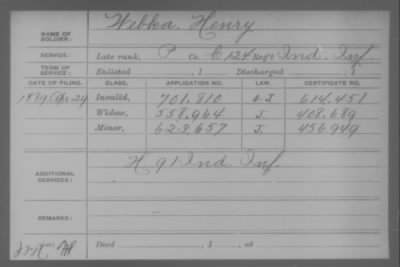 NAME OF SOLDIER: Webka, Henry
SERVICE: Late rank, P Co. C 124 Reg't Ind. Inf.
TERM OF SERVICE: Enlisted , 1 Discharged , 1
DATE OF FILING. CLASS. APPLICATION NO. LAW. CERTIFICATE NO.
1889, Apr. 29 Invalid, 701.810 614.451
Widow, 558.964 J. 408.689
Minor, 623.657 J. 456.949
ADDITIONAL SERVICES: H 91 Ind Inf.
REMARKS:
Died , 1 , at